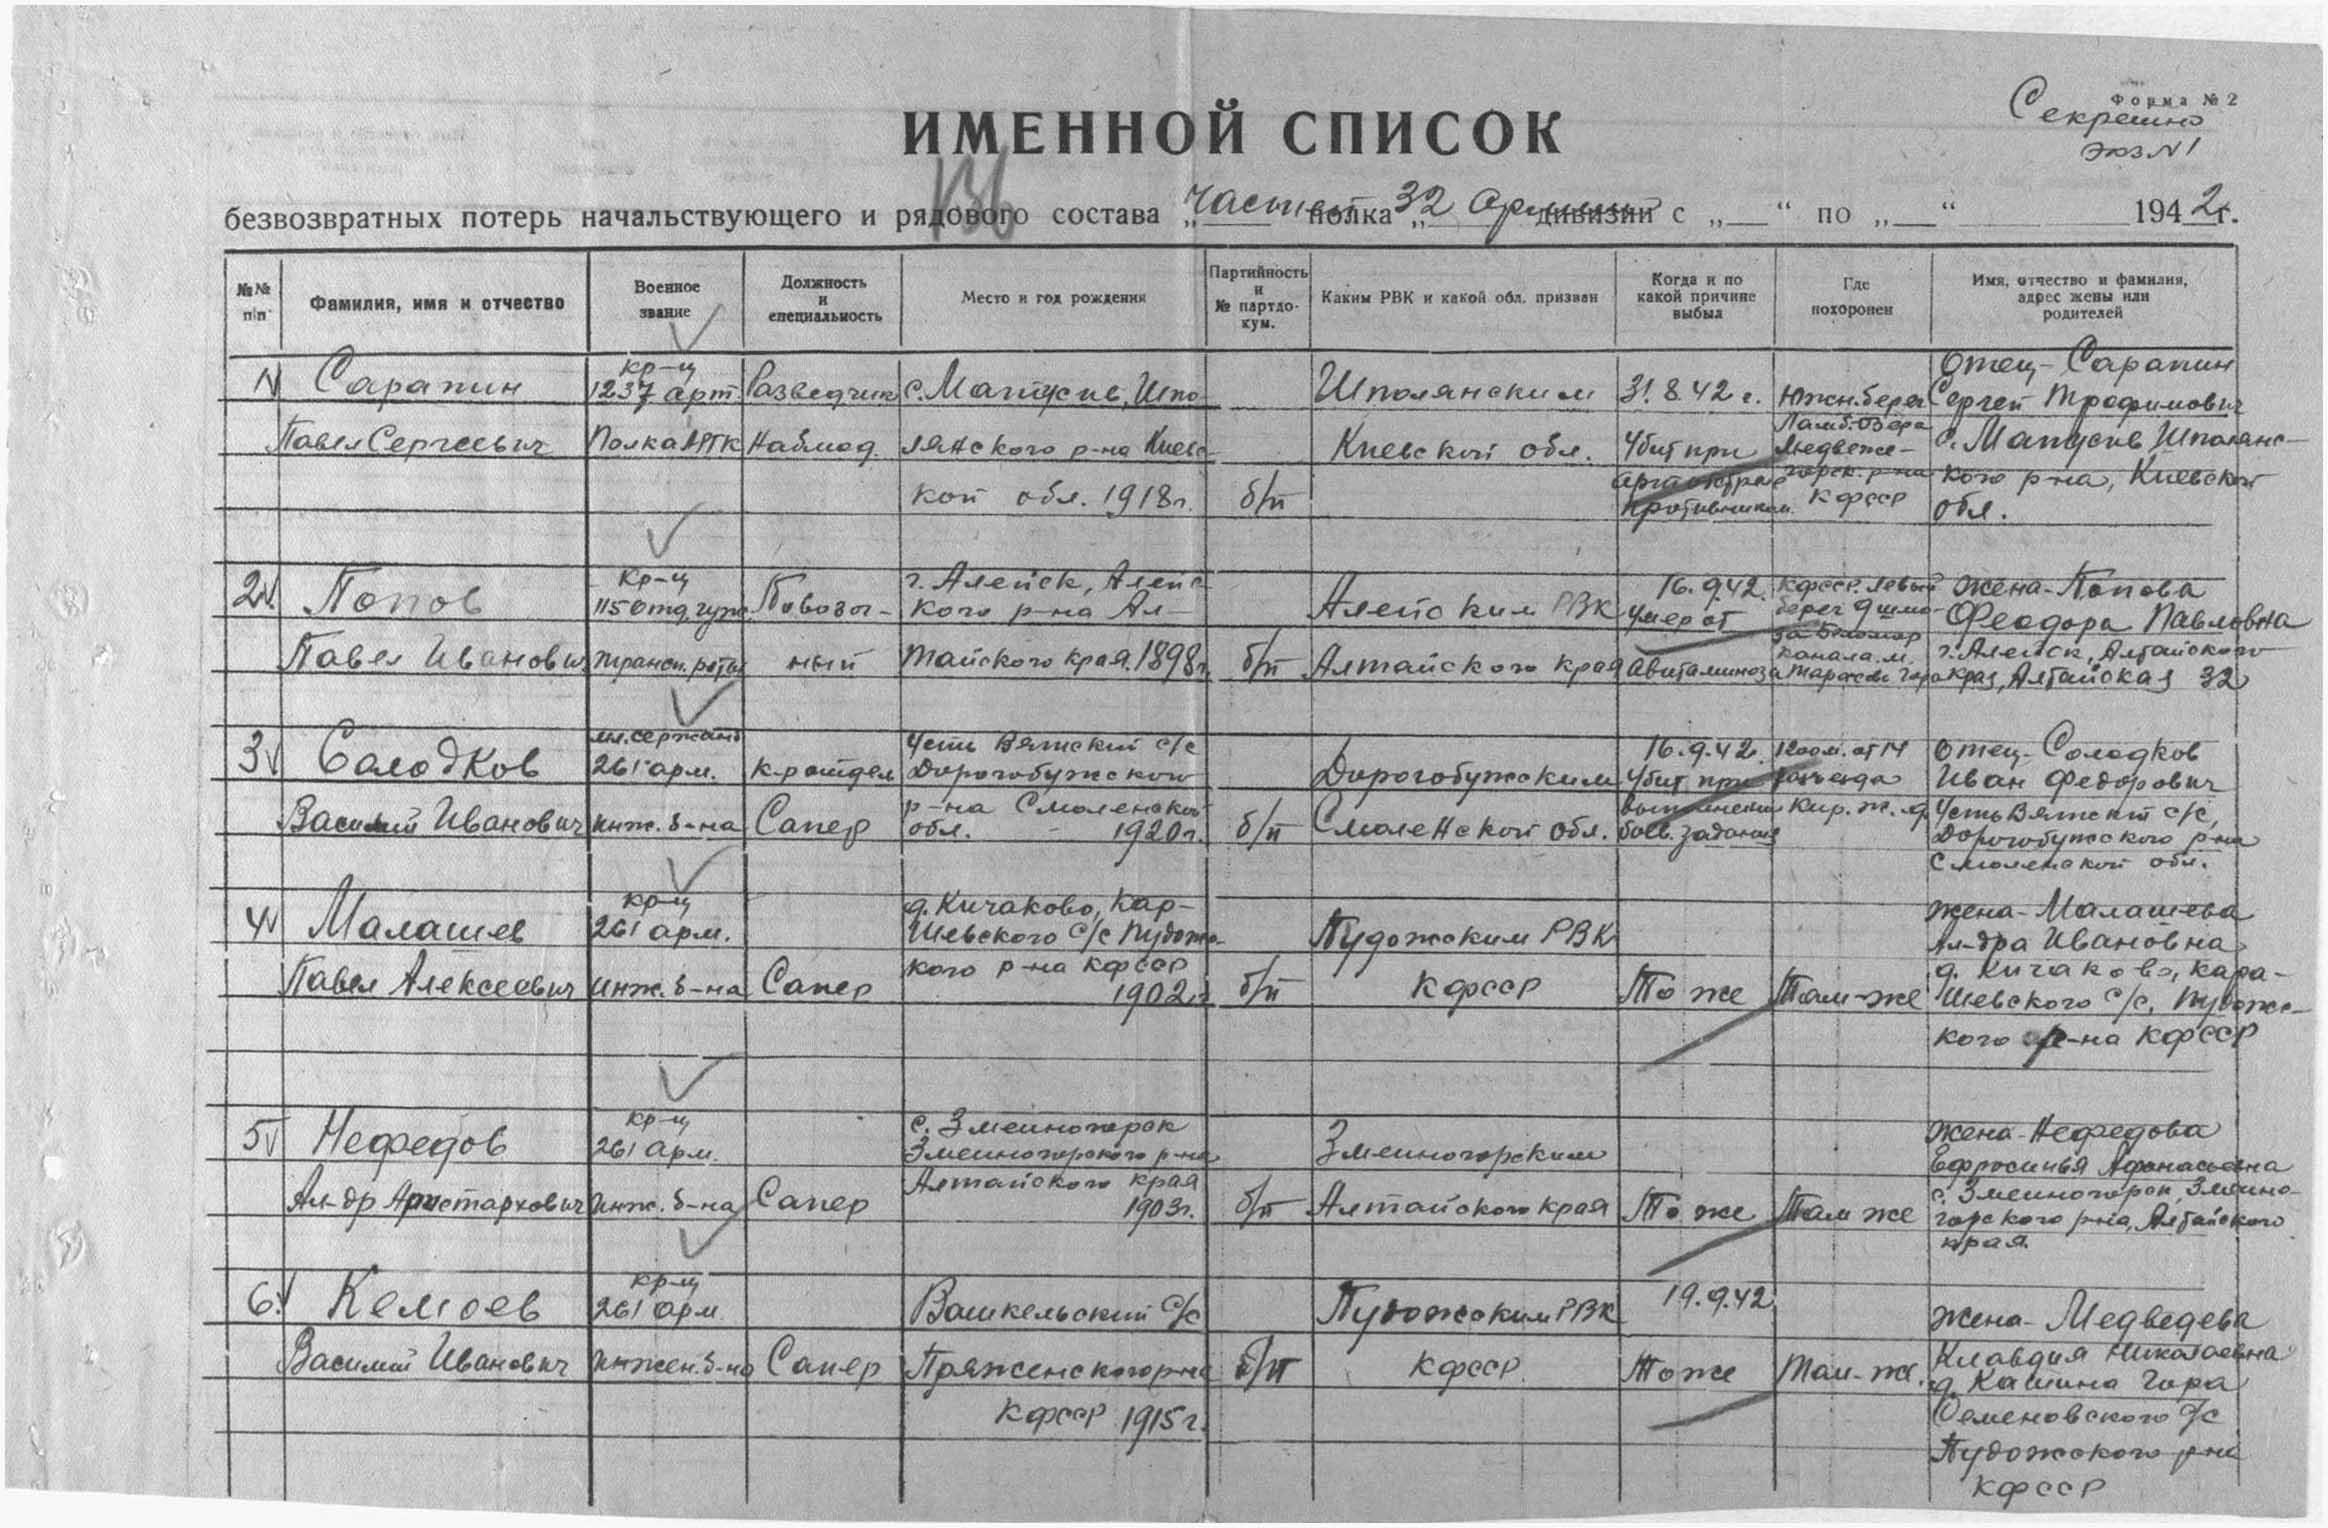 Форма № 2
Секретно
экз N 1
ИМЕННОЙ СПИСОК
136
безвозвратных потерь начальствующего и рядового состава „частей полка „32 армии дивизии с „ “ по „ “ 1942 г.
№№ п/п
Фамилия, имя и отчество
Военное звание
Должность и специальность
Место и год рождения
Партийность и № партдокум.
Каким РВК и какой обл. призван
Когда и по какой причине выбыл
Где похоронен
Имя, отчество и фамилия, адрес жены или родителей
1
Сарапин
Павел Сергеевич
кр-ц
1237 арт.
Полка АРГК
Разведчик
Наблюд.
с. Матусив, Шпо-
лянского р-на Киевс-
кой обл. 1918 г.
б/п
Шполянским
Киевской обл.
31.8.42 г.
Убит при
противником.
Южн. берег
Ламб. Озера
Медвеже-
горск. р-на
КФССР
Отец - Сарапин
Сергей Трофимович
с. Матусив Шполянс-
кого р-на, Киевской
обл.
2.
Попов
Павел Иванович
кр-ц
115 отд. гуж.
трансп. роты
Повозоч-
ный
г. Алейск, Алейс-
кого р-на Ал-
тайского края. 1898 г.
б/п
Алейским РВК
Алтайского края
16.9.42.
Умер от
Авитаминоза
КФССР. левый
берег 9 шлю-
за Беломор
канала. м.
Тарасова гора
Жена - Попова
Феодора Павловна
г. Алейск, Алтайского
края, Алтайская 32
3
Солодков
Василий Иванович
мл. сержант
261 арм.
инж. б-на
к-р отдел
Сапер
Усть Вятский с/с
Дорогобужского
р-на Смоленской
обл. - 1920 г.
б/п
Дорогобужским
Смоленской обл.
16.9.42.
Убит при
выполнении
боев. задания
1200 м. от 14
разъезда
Кир. ж. д.
Отец - Солодков
Иван Федорович
Усть Вятский с/с,
Дорогобужского р-на
Смоленской обл.
4
Малашев
Павел Алексеевич
кр-ц
261 арм.
инж. б-на
Сапер
д. Кичаково, Кар-
шевского с/с Пудожс-
кого р-на КФССР
1902 г.
б/п
Пудожским РВК
КФССР
То же
Там-же
Жена - Малашева
Ал-дра Ивановна
д. Кичаково, Кара-
шевского с/с, Пудожс-
кого р-на КФССР
5
Нефедов
Ал-др Аристархович
кр-ц
261 арм.
инж. б-на
Сапер
с. Змеиногорск
Змеиногорского р-на
Алтайского края
1903 г.
б/п
Змеиногорским
Алтайского края
То же
Там же
Жена - Нефедова
Ефросинья Афонасьевна
с. Змеиногорск, Змеино-
горского р-на, Алтайского
края.
6.
Келлоев
Василий Иванович
кр-ц
261 арм.
инжен. б-на
Сапер
Вашкельский с/с
Пряженского р-на
КФССР 1915 г.
б/п
Пудожским РВК
КФССР.
19.9.42
То же
Там-же.
Жена - Медведева
Клавдия Николаевна
д. Кашина Гора
Семеновского с/с
Пудожского р-на
КФССР